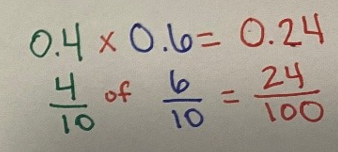 0.4 × 0.6 = 0.24
4/10 of 6/10 = 24/100